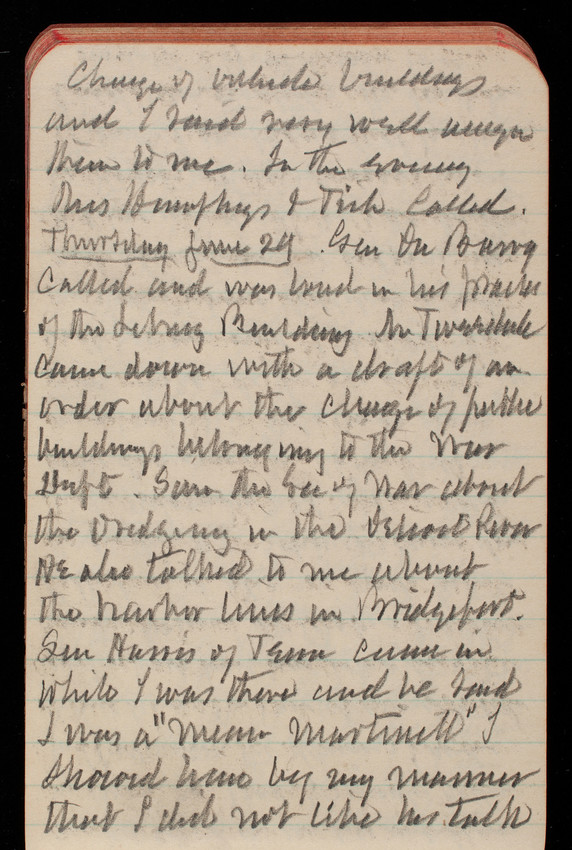 Charge of outside buildings
and I said very well assign
them to me. In the evening
Mrs Humphreys & Tish Called.
Thursday June 24 Gen Du Barry
Called and was loud in his praises
of the Library Building Mr Tweedale
came down with a draft of an
order about the charge of public
buildings belonging to the War
Dept. Saw the Sec of War about
the dredging in the Detroit River
He also talked to me about
the harbor lines in Bridgeport.
Sen Harris of Tenn came in
while I was there and he said
I was a "mean martinett" I
showed him by my manner
that I did not like his talk